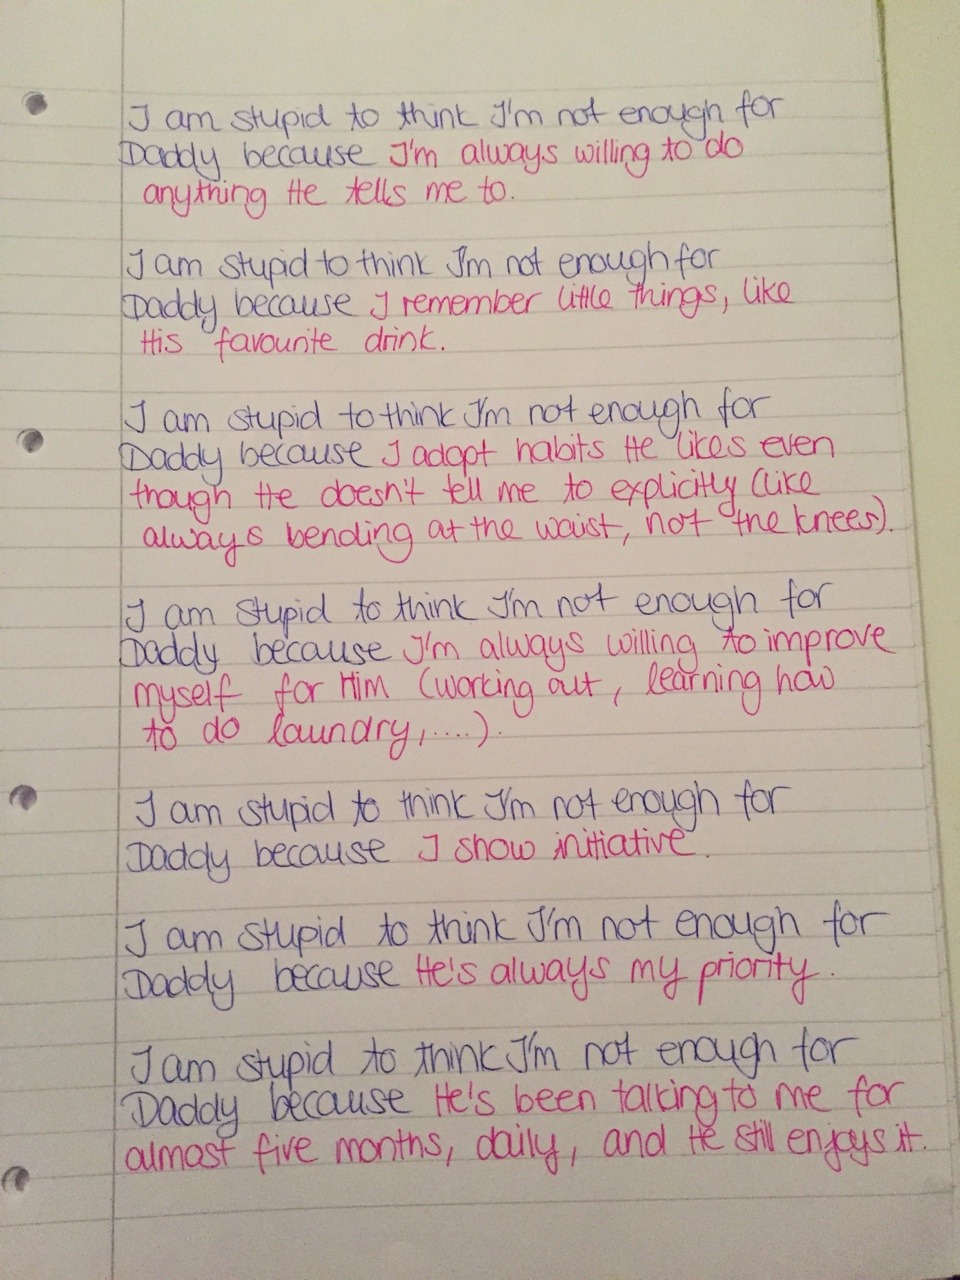 I am stupid to think I'm not enough for
Daddy because I'm always willing to do
anything He tells me to.
I am stupid to think I'm not enough for
Daddy because I remember little things, like
His favourite drink.
I am stupid to think I'm not enough for
Daddy because I adopt habits He likes even
though He doesn't tell me to explicitly (like
always bending at the waist, not the knees).
I am stupid to think I'm not enough for
Daddy because I'm always willing to improve
myself for Him (working out, learning how
to do laundry,....).
I am stupid to think I'm not enough for
Daddy because I show initiative.
I am stupid to think I'm not enough for
Daddy because He's always my priority.
I am stupid to think I'm not enough for
Daddy because He's been talking to me for
almost five months, daily, and He still enjoys it.